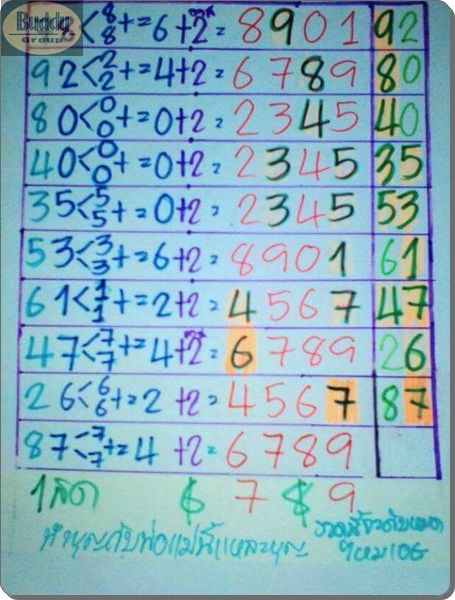 Buddy
Group
<8/8+=6+2= 8901 92
92<2/2+=4+2= 6789 80
80<0/0+=0+2= 2345 40
40<0/0+=0+2= 2345 35
35<5/5+=0+2= 2345 53
53<3/3+=6+2= 8901 61
61<1/1+=2+2= 4567 47
47<7/7+=4+2= 6789 26
26<6/6+=2+2= 4567 87
87<7/7+=4+2= 6789
7 9
ทำบุญกับพ่อแม่นี่แหละบุญ